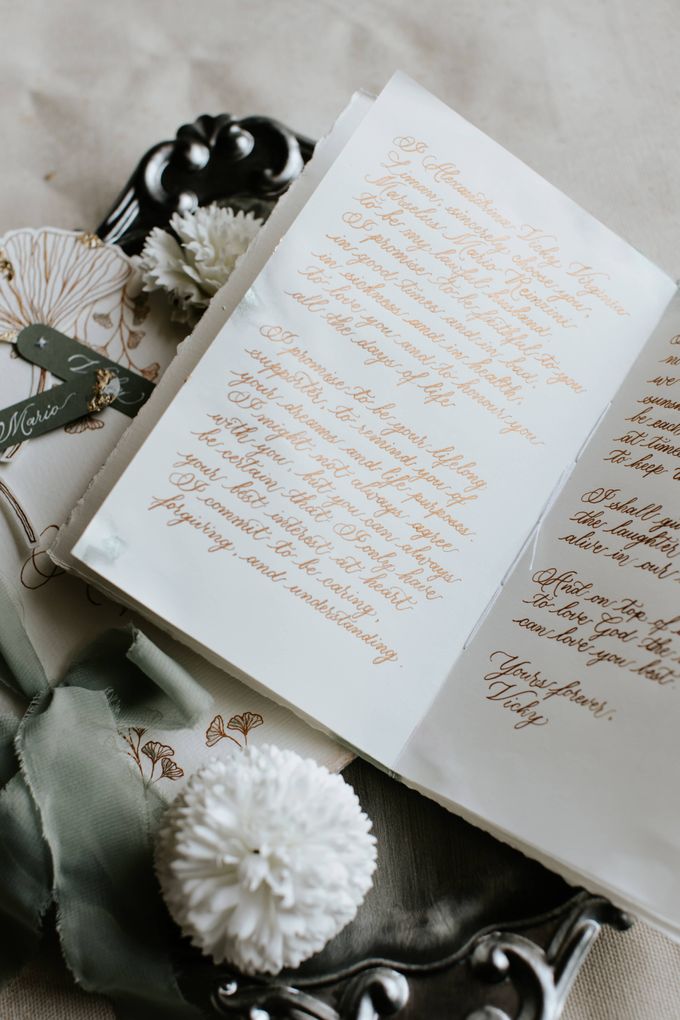 Mario
I Vicky
sincerely choose you,
Mario
to be my lawful husband.
I promise to be faithful to you
in good times and in bad,
in sickness and in health,
to love you and to honour you
all the days of life
I promise to be your lifelong
supporter, to remind you of
your dreams and life purposes.
I might not always agree
with you, but you can always
be certain that I only have
your best interest at heart.
I commit to be caring,
forgiving, and understanding.
we
be each
at time
to keep
I shall
the laughter
alive in our
And on top of
to love God the
can love you best.
Yours forever,
Vicky